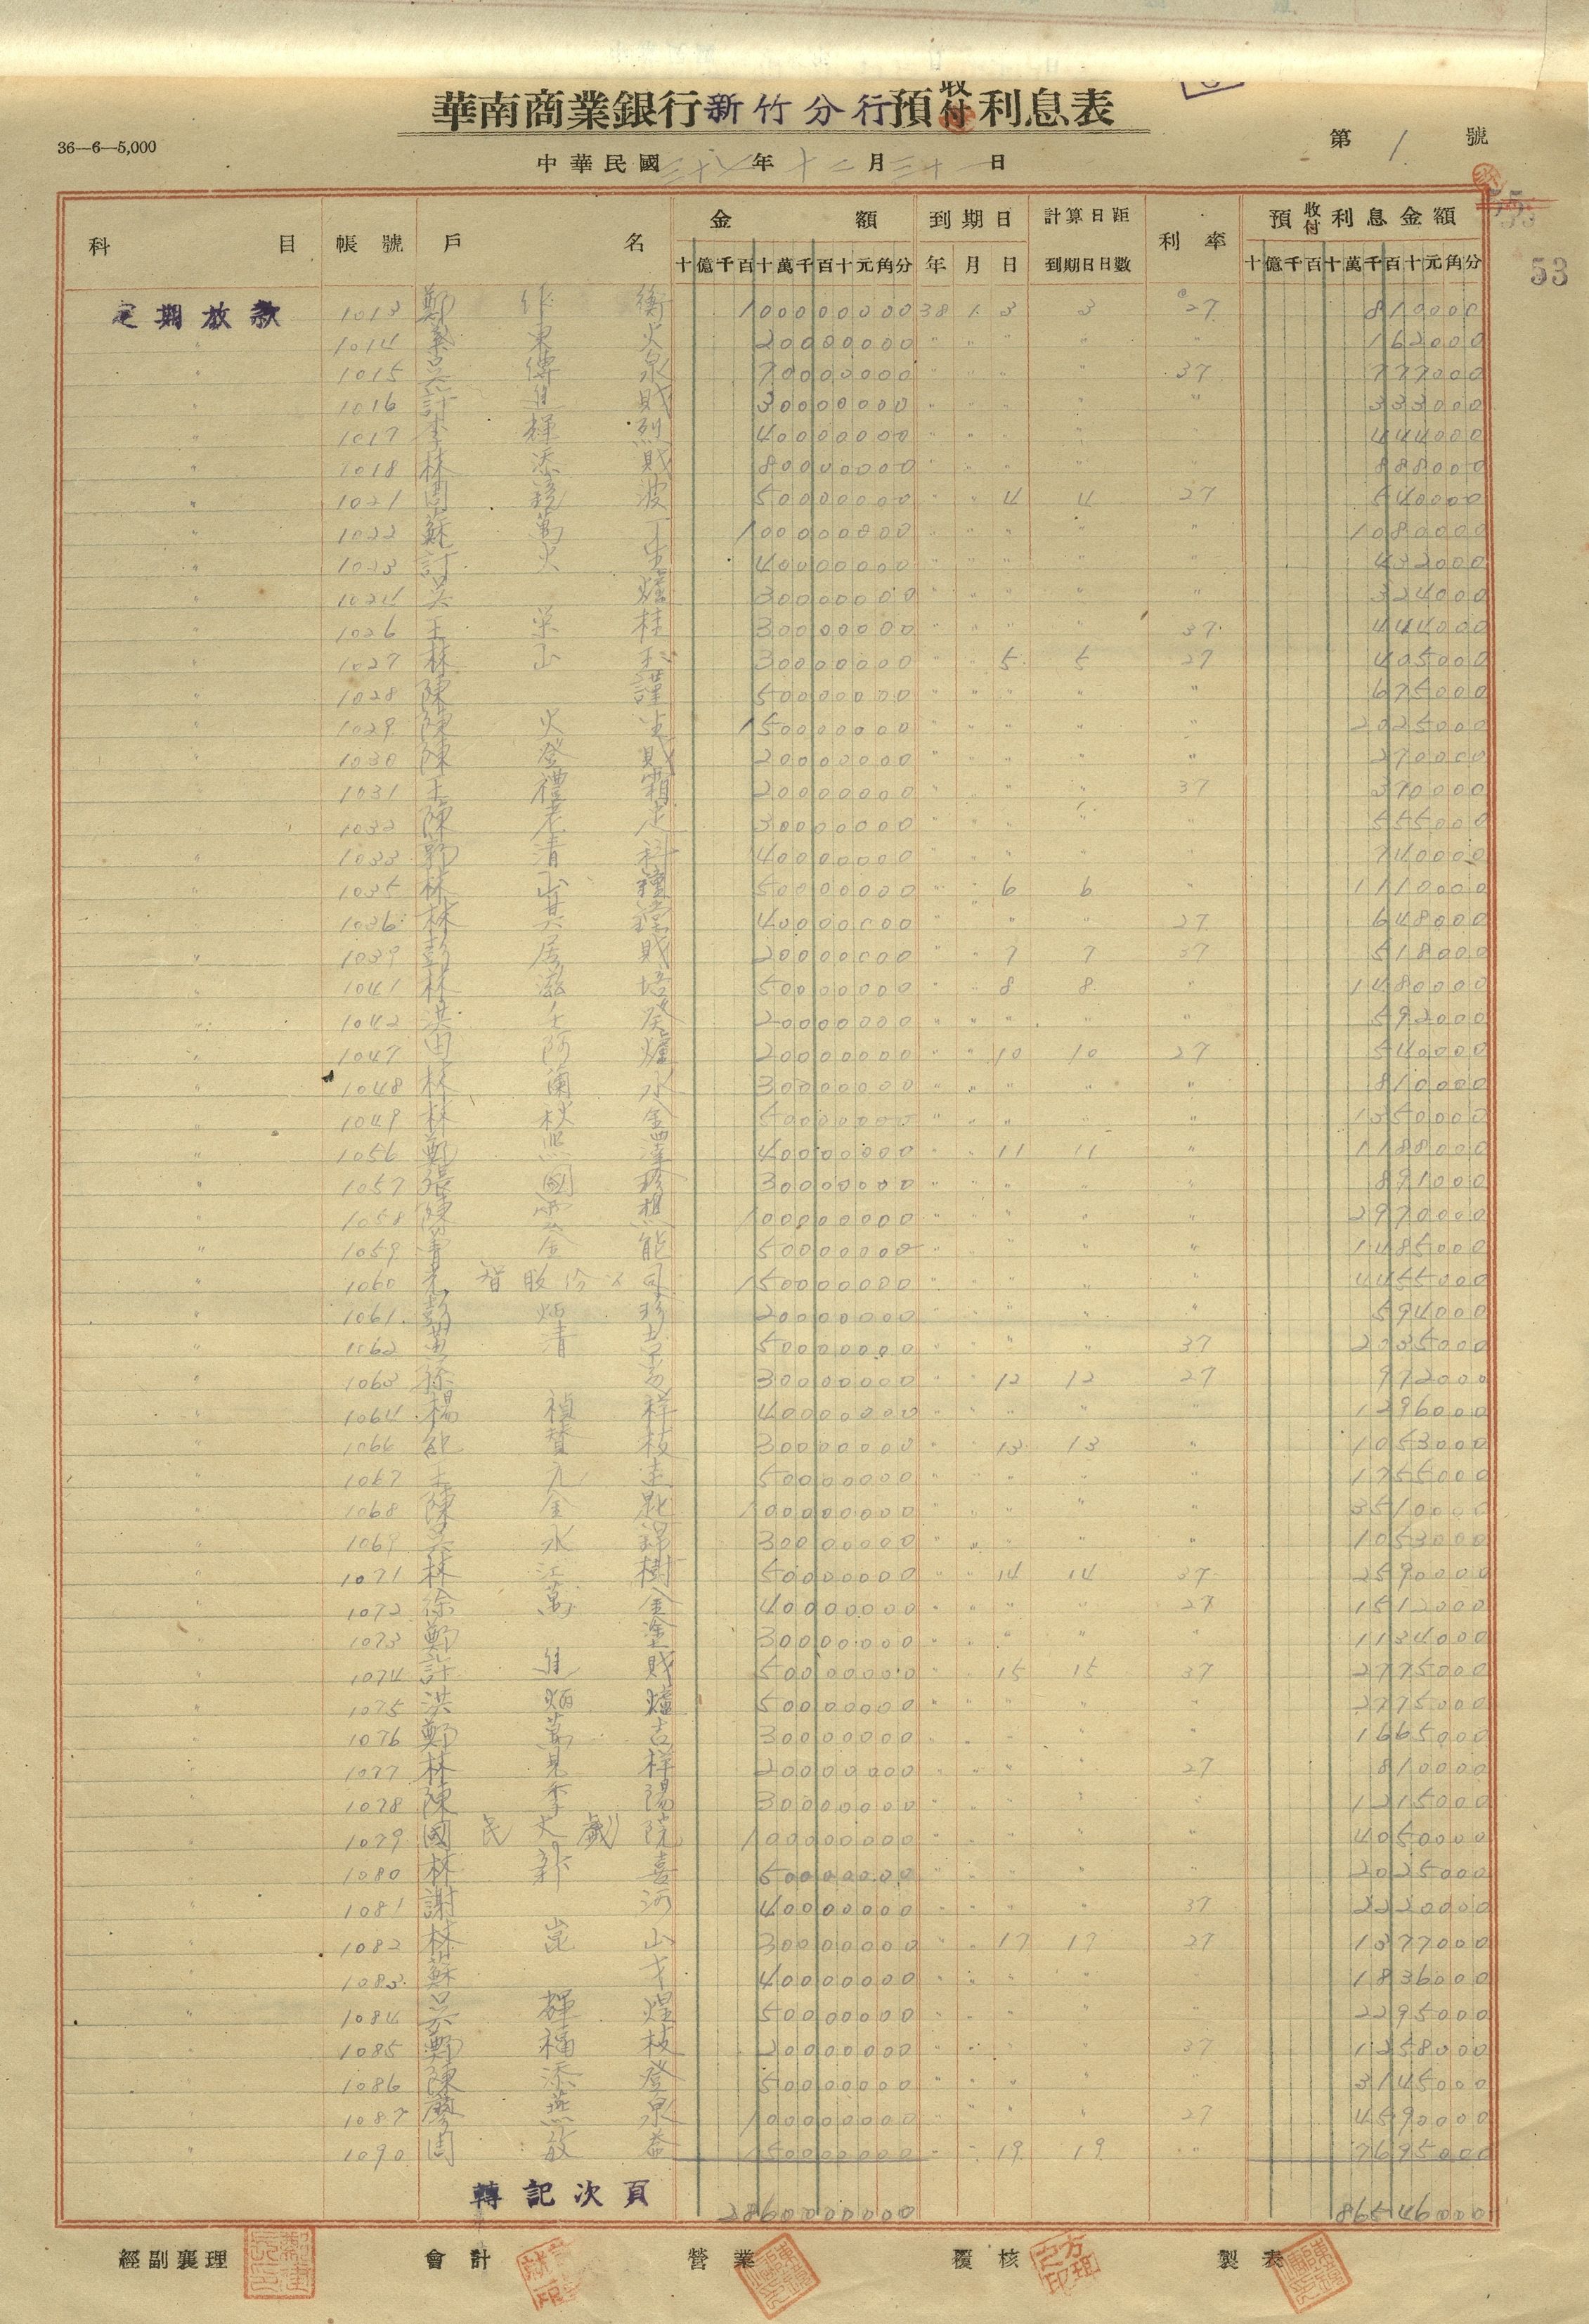 華南商業銀行新竹分行預收付利息表
36—6—5,000
中華民國三十八年十二月三十一日
第 1 號
53
科目 帳號 戶名 金額 到期日 計算日距到期日日數 利率 預收付利息金額
十億千百十萬千百十元角分 年 月 日 十億千百十萬千百十元角分
定期放款 1013 鄭作衡 100000000 38 1 3 3 27 810000
〃 1014 葉東火 20000000 〃 〃 〃 〃 〃 162000
〃 1015 吳傳泉 70000000 〃 〃 〃 〃 37 777000
〃 1016 許進財 30000000 〃 〃 〃 〃 〃 333000
〃 1017 李輝烈 40000000 〃 〃 〃 〃 〃 444000
〃 1018 林添財 80000000 〃 〃 〃 〃 〃 888000
〃 1021 周 波 50000000 〃 〃 4 4 27 540000
〃 1022 蘇萬丁 100000000 〃 〃 〃 〃 〃 1080000
〃 1023 許火生 40000000 〃 〃 〃 〃 〃 432000
〃 1024 吳爐 30000000 〃 〃 〃 〃 〃 324000
〃 1026 王榮桂 30000000 〃 〃 〃 〃 37 444000
〃 1027 林山玉 30000000 〃 〃 5 5 27 405000
〃 1028 陳謹 50000000 〃 〃 〃 〃 〃 675000
〃 1029 陳火生 150000000 〃 〃 〃 〃 〃 2025000
〃 1030 陳登財 20000000 〃 〃 〃 〃 〃 270000
〃 1031 王禮霜 20000000 〃 〃 〃 〃 37 370000
〃 1032 陳老定 30000000 〃 〃 〃 〃 〃 555000
〃 1033 郭清 40000000 〃 〃 〃 〃 〃 740000
〃 1035 林山 50000000 〃 〃 6 6 〃 1110000
〃 1036 林其 40000000 〃 〃 〃 〃 27 648000
〃 1039 彭居財 20000000 〃 〃 7 7 37 518000
〃 1041 林 培 50000000 〃 〃 8 8 〃 1480000
〃 1042 洪 癸 20000000 〃 〃 〃 〃 〃 592000
〃 1047 田阿爐 20000000 〃 〃 10 10 27 540000
〃 1048 林蘭水 30000000 〃 〃 〃 〃 〃 810000
〃 1049 林秋金 50000000 〃 〃 〃 〃 〃 1350000
〃 1056 鄭照澤 40000000 〃 〃 11 11 〃 1188000
〃 1057 張國珍 30000000 〃 〃 〃 〃 〃 891000
〃 1058 陳雲祖 100000000 〃 〃 〃 〃 〃 2970000
〃 1059 曾金能 50000000 〃 〃 〃 〃 〃 1485000
〃 1060 股份公司 150000000 〃 〃 〃 〃 〃 4455000
〃 1061 彭炳珍 20000000 〃 〃 〃 〃 〃 594000
〃 1062 黃清 50000000 〃 〃 〃 〃 37 2035000
〃 1063 徐 30000000 〃 〃 12 12 27 972000
〃 1064 楊禎祥 40000000 〃 〃 〃 〃 〃 1296000
〃 1066 贊枝 30000000 〃 〃 13 13 〃 1053000
〃 1067 王九 50000000 〃 〃 〃 〃 〃 1755000
〃 1068 陳金 100000000 〃 〃 〃 〃 〃 3510000
〃 1069 吳水錦 30000000 〃 〃 〃 〃 〃 1053000
〃 1071 林江樹 50000000 〃 〃 14 14 37 2590000
〃 1072 徐萬金 40000000 〃 〃 〃 〃 27 1512000
〃 1073 鄭塗 30000000 〃 〃 〃 〃 〃 1134000
〃 1074 許進財 50000000 〃 〃 15 15 37 2775000
〃 1075 洪炳爐 50000000 〃 〃 〃 〃 〃 2775000
〃 1076 鄭萬吉 30000000 〃 〃 〃 〃 〃 1665000
〃 1077 林見祥 20000000 〃 〃 〃 〃 27 810000
〃 1078 陳季湯 30000000 〃 〃 〃 〃 〃 1215000
〃 1079 國民大戲院 100000000 〃 〃 〃 〃 〃 4050000
〃 1080 林新喜 50000000 〃 〃 〃 〃 〃 2025000
〃 1081 謝河 40000000 〃 〃 〃 〃 37 2220000
〃 1082 林崑山 30000000 〃 〃 17 17 27 1377000
〃 1083 蘇才 40000000 〃 〃 〃 〃 〃 1836000
〃 1084 吳輝煌 50000000 〃 〃 〃 〃 〃 2295000
〃 1085 鄭福枝 20000000 〃 〃 〃 〃 37 1258000
〃 1086 陳添登 50000000 〃 〃 〃 〃 〃 3145000
〃 1087 廖燕泉 100000000 〃 〃 〃 〃 27 4590000
〃 1090 周敏益 150000000 〃 〃 19 19 〃 7695000
轉記次頁 2860000000 86546000
經副襄理 會計 營業 覆核 製表